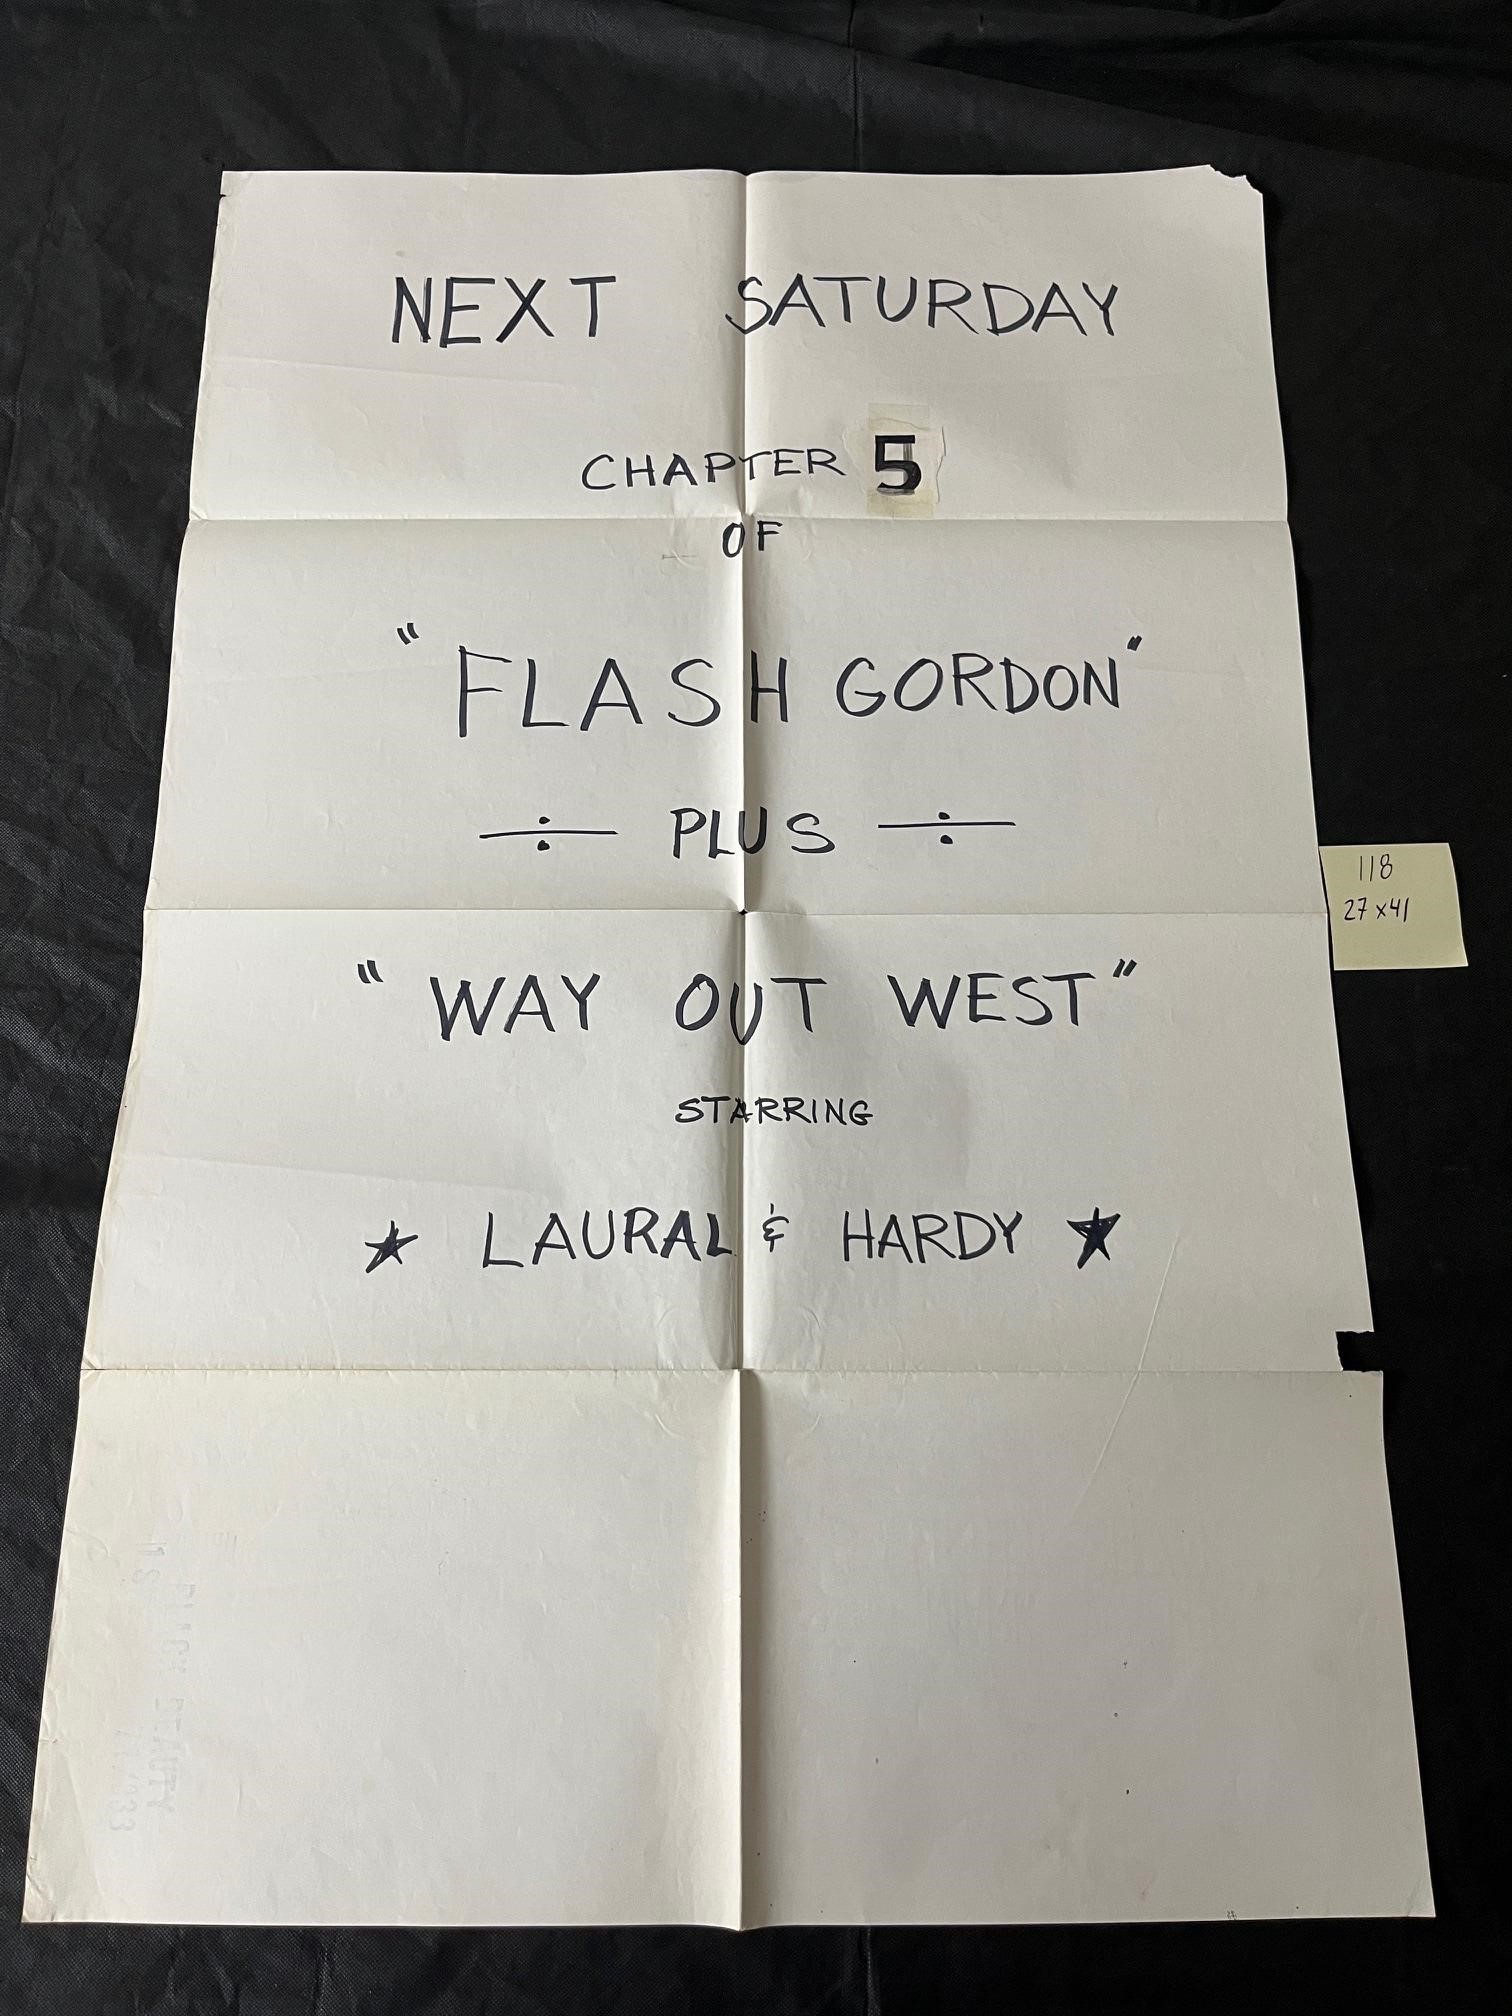 NEXT SATURDAY
CHAPTER 5
OF
"FLASH GORDON"
÷ PLUS ÷
"WAY OUT WEST"
STARRING
★ LAURAL & HARDY ★
118
27 x 41